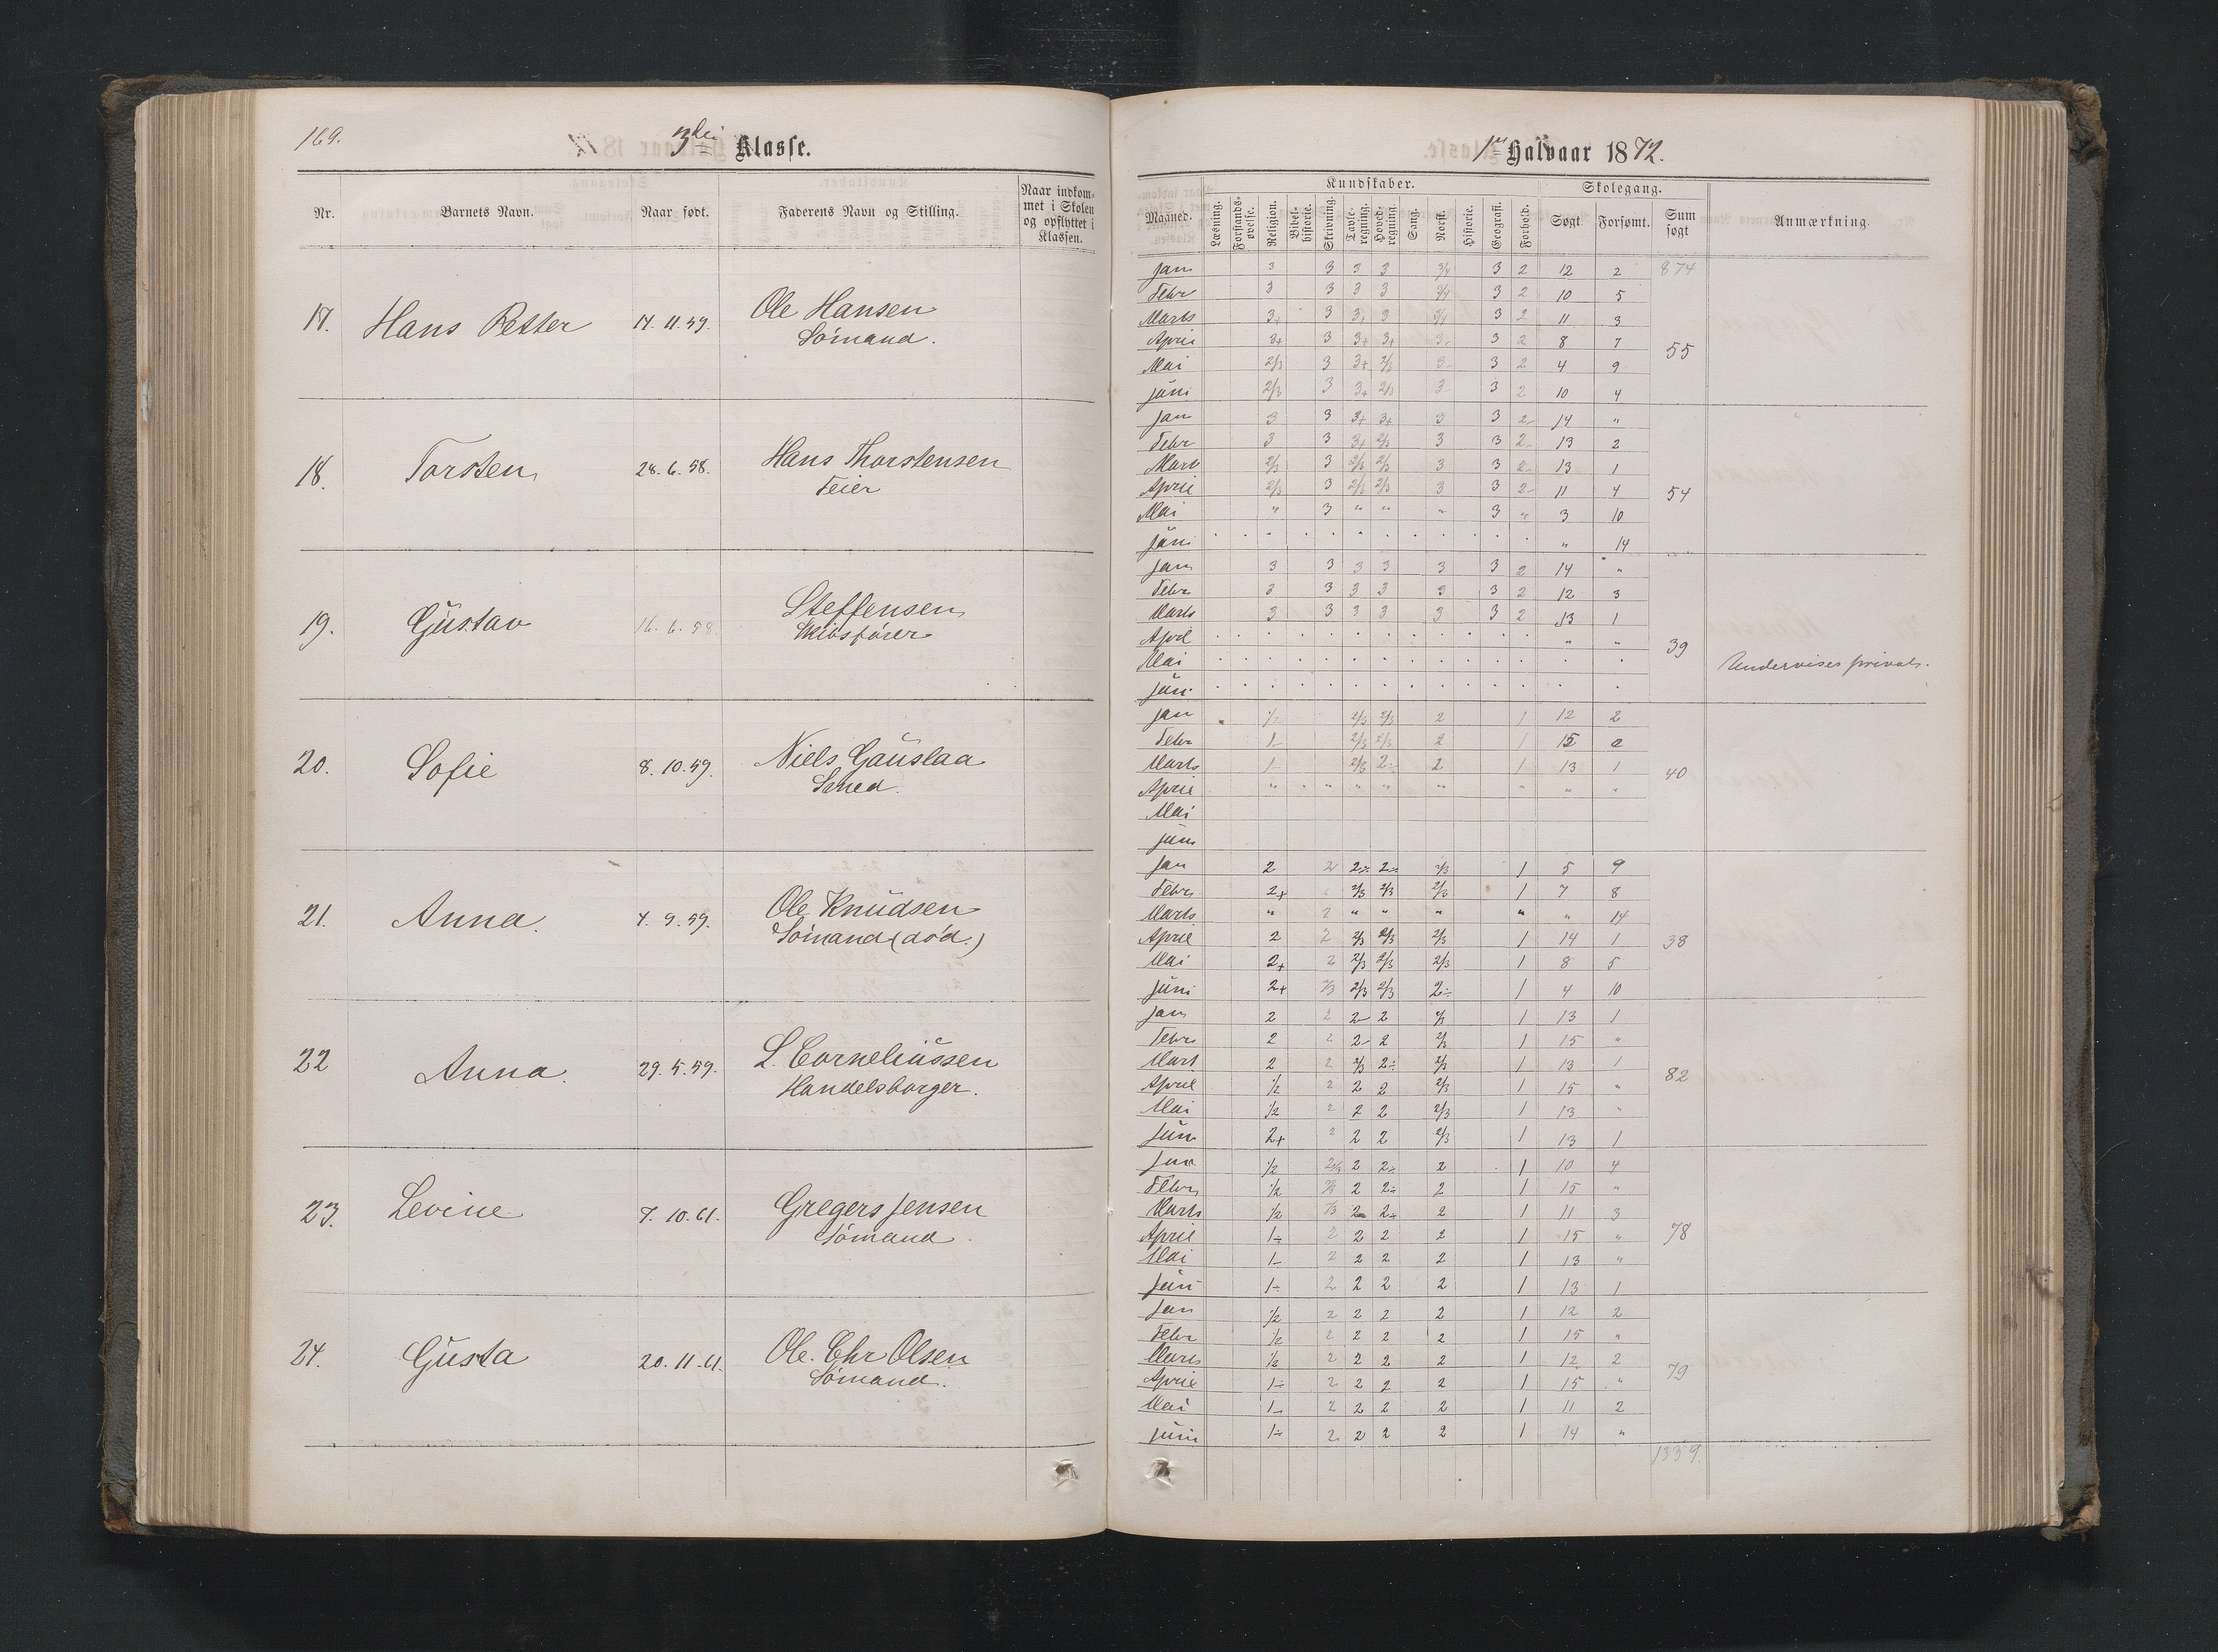 169.
3die Klasse.
Nr. Barnets Navn. Naar født. Faderens Navn og Stilling. Naar indkom=
met i Skolen
og opflyttet i
Klassen.
17. Hans Petter 17. 11. 59. Ole Hansen
Sömand.
18. Torsten 28. 6. 58. Hans Thorstensen
Feier
19. Gustav 16. 6. 58. Steffensen
Skibsförer
20. Sofie 8. 10. 59. Niels Gauslaa
Smed.
21. Anna. 7. 9. 59. Ole Knudsen
Sömand (död.)
22 Anna. 29. 5. 59. L. Corneliussen
Handelsborger.
23. Levine 7. 10. 61. Gregers Jensen
Sömand
24. Gusta 20. 11. 61. Ole Chr Olsen
Sömand.
1ste Halvaar 1872.
Kundskaber. Skolegang.
Maaned. Læsning. Forstands-øvelse. Religion. Bibel-historie. Skrivning. Tavle-regning. Hoved-regning. Sang. Norsk. Historie. Geografi. Forhold. Søgt Forsømt. Sum søgt Anmærkning.
Jan 3 3 3 3 3/4 3 2 12 2 874
Febr 3 3 3 3 3/4 3 2 10 5
Marts 3+ 3 3+ 3 3/4 3 2 11 3
April 3+ 3 3+ 3+ 3- 3 2 8 7 55
Mai 2/3 3 3+ 2/3 3- 3 2 4 9
Juni 2/3 3 3+ 2/3 3- 3 2 10 4
Jan 3 3 3+ 3+ 3 3 2- 14 "
Febr 3 3 3+ 2/3 3 3 2- 13 2
Mart 2/3 3 2/3 2/3 3 3 2- 13 1
April 2/3 3 2/3 2/3 3 3 2- 11 4 54
Mai " 3 " " " 3 " 3 10
Juni " 14
Jan 3 3 3 3 3 3 2 14 "
Febr 3 3 3 3 3 3 2 12 3
Marts 3 3 3 3 3 3 2 13 1
April " " 39
Mai Undervises privat.
Juni
Jan 1/2 2/3 2/3 2 1 12 2
Febr 1- 2/3 2/3 2 1 15 "
Marts 1- 2/3 2÷ 2 1 13 1 40
April " " " " " " " " "
Mai
Juni
Jan 2 2 2÷ 2÷ 2/3 1 5 9
Febr 2+ 2/3 2/3 2/3 1 7 8
Marts " 2 " " " " " 14
April 2 2 2/3 2/3 2/3 1 14 1 38
Mai 2+ 2 2/3 2/3 2/3 1 8 5
Juni 2+ 2/3 2/3 2/3 2÷ 1 4 10
Jan 2 2 2- 2 2/3 1 13 1
Febr 2 2 2- 2 2/3 1 15 "
Mart 2 2 2/3 2÷ 2/3 1 13 1
April 1/2 2 2 2 2/3 1 15 " 82
Mai 1/2 2 2 2 2/3 1 13 "
Juni 2+ 2 2 2 2/3 1 13 1
Jan 1/2 2/3 2 2÷ 2 1 10 4
Febr 1/2 2/3 2 2÷ 2 1 15 "
Marts 1/2 2/3 2 2+ 2 1 11 3
April 1÷ 2 2 2 2 1 15 " 78
Mai 1- 2 2 2 2 1 13 "
Juni 1÷ 2 2 2 2 1 13 1
Jan 1/2 2 2 2 2 1 12 2
Febr 1/2 2 2 2 2 1 15 "
Marts 1/2 2 2 2 2 1 12 2 79
April 1÷ 2 2 2 2 1 15 "
Mai 1- 2 2 2 2 1 11 2
Juni 1÷ 2 2 2 2 1 14 "
1339.